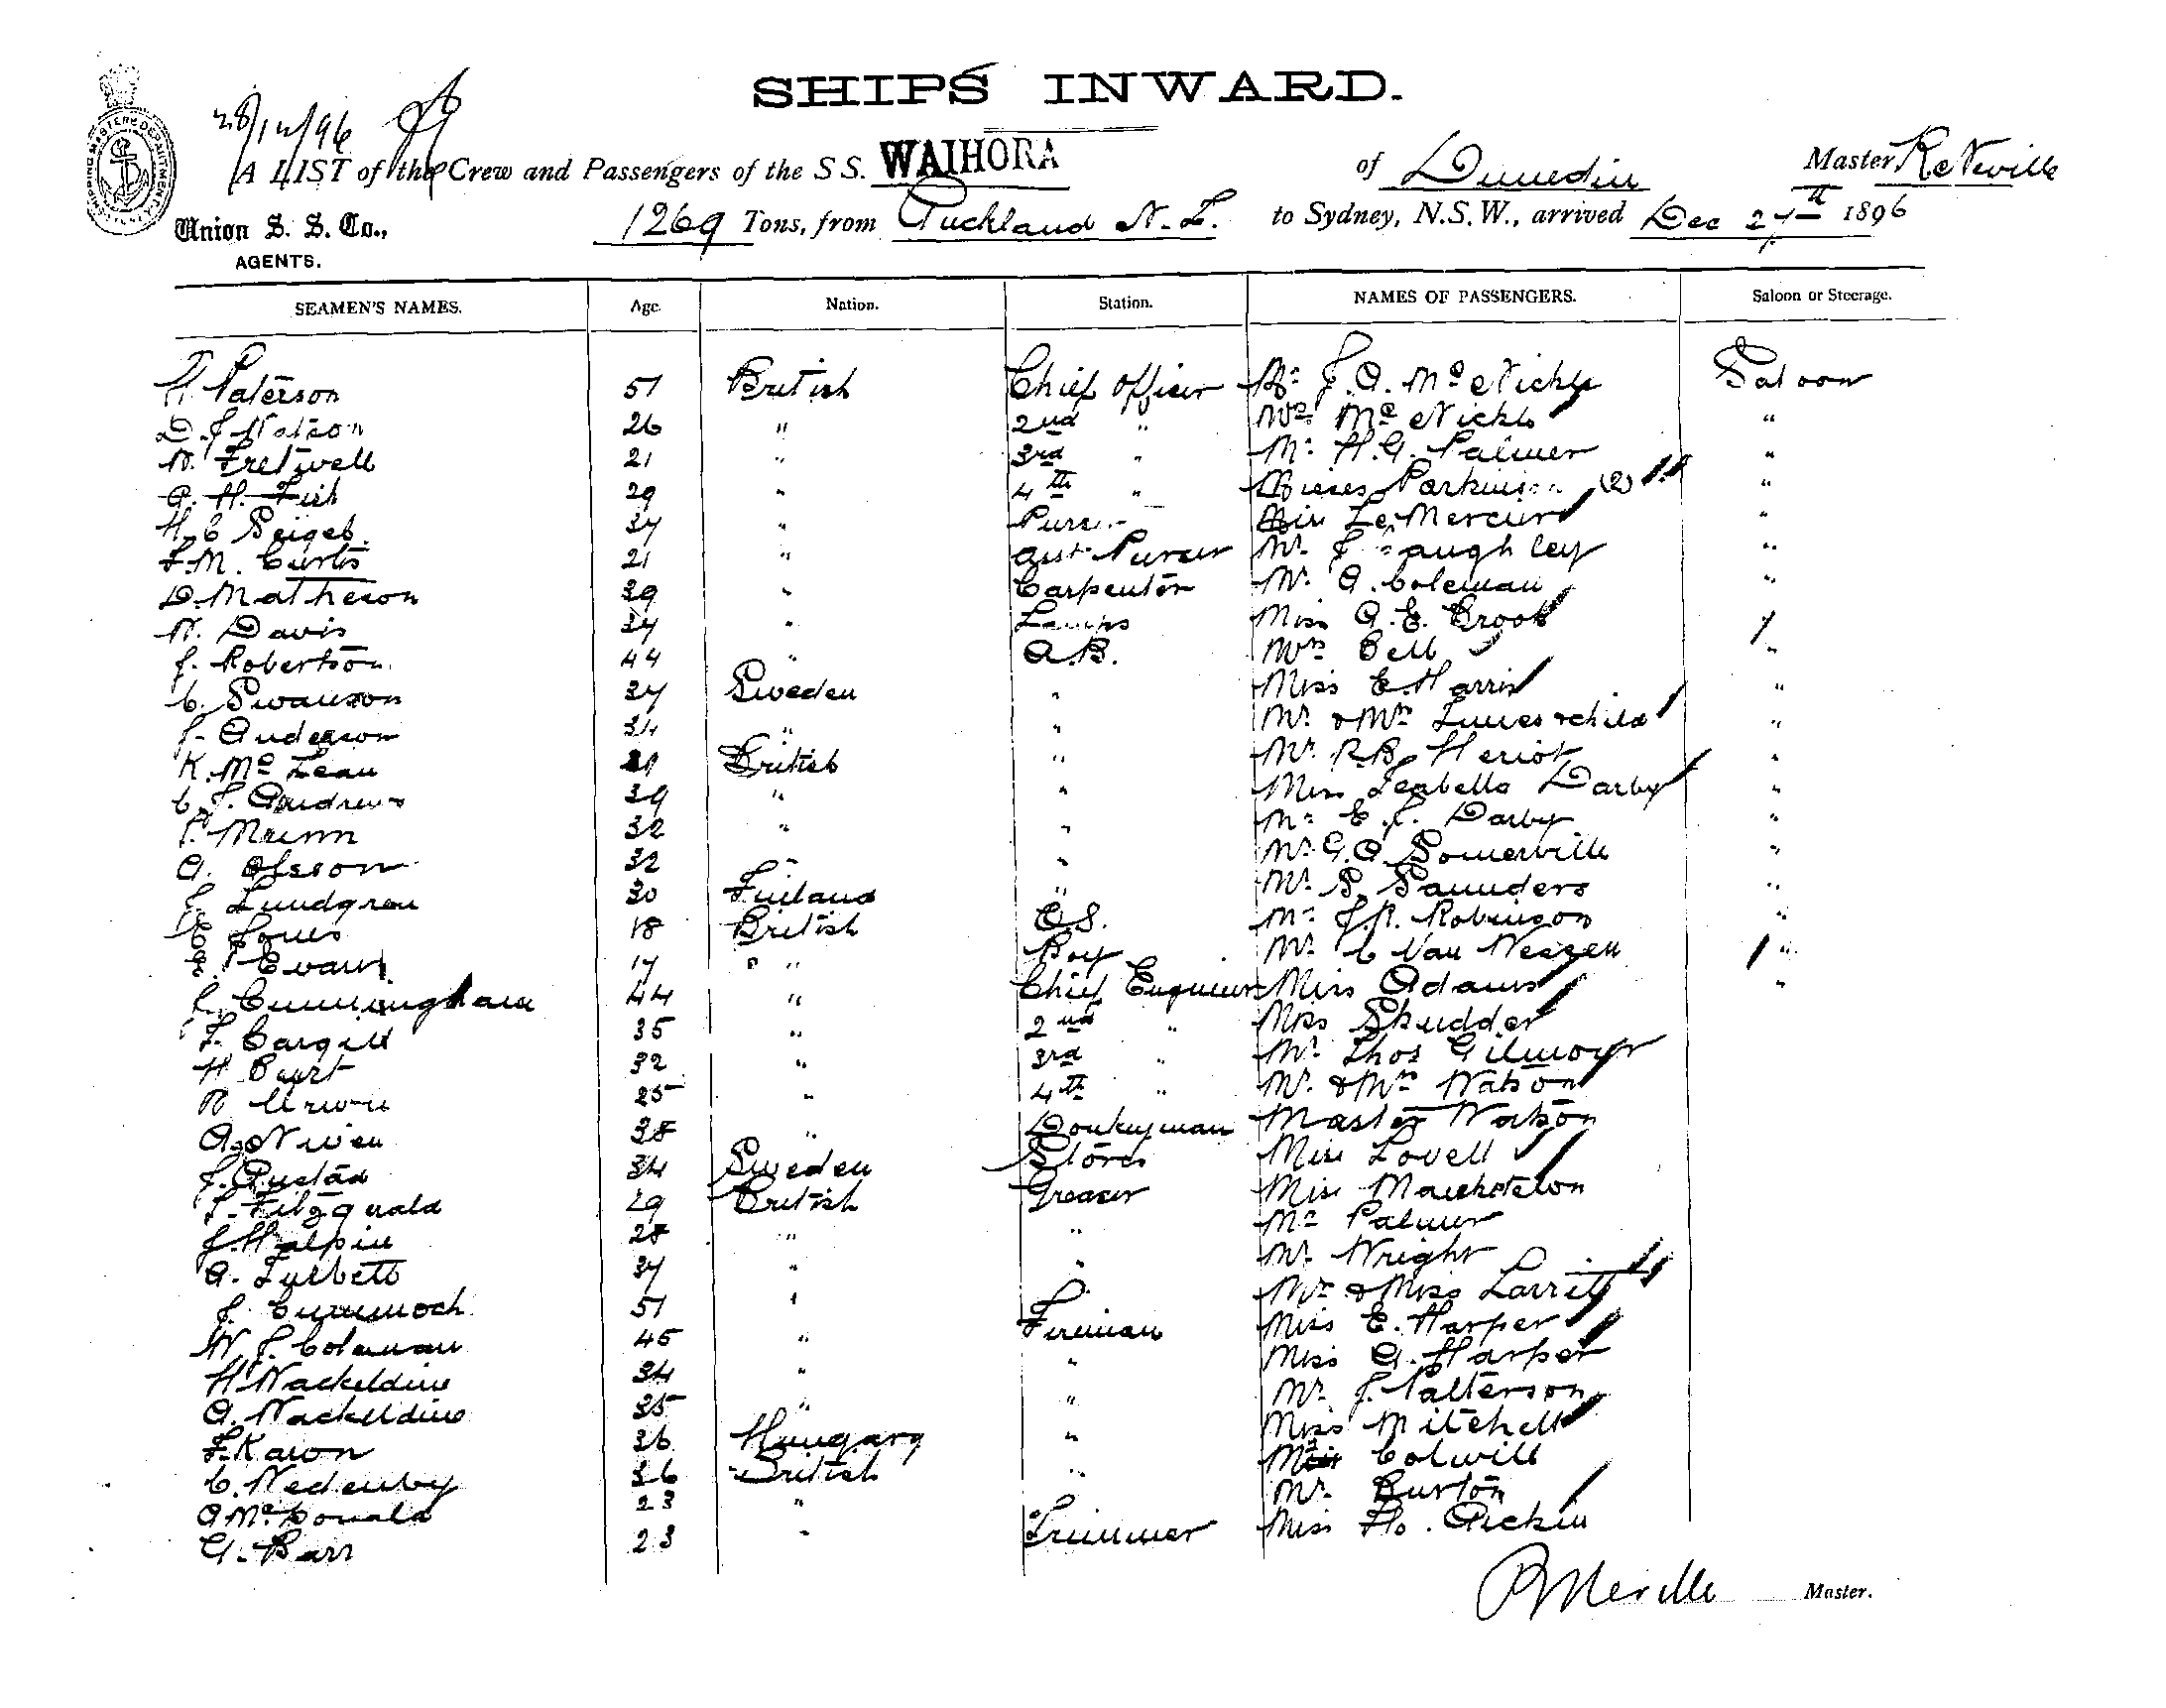 SHIPS INWARD.
28/12/96
A LIST of the Crew and Passengers of the S.S. WAIHORA of Dunedin Master R Neville
Union S. S. Co., 1269 Tons, from Auckland N.Z. to Sydney, N.S.W., arrived Dec 27th 1896
AGENTS.
SEAMEN'S NAMES. Age. Nation. Station. NAMES OF PASSENGERS. Saloon or Steerage.
Paterson 51 British Chief Officer Mr J. A. McNickle Saloon
D. J. Watson 26 " 2nd " Mrs McNickle "
W. Fretwell 21 " 3rd " Mr H. G. Palmer "
A. H. Fish 29 " 4th " Misses Parkinson (2) "
H. C Seigel 37 " Purser Miss Le Mercier "
F. M. Curtis 21 " Asst Purser Mr J "
D. Matheson 39 " Carpenter Mr A. Coleman "
W. Davis 37 " Lamps Miss A. E. Brook "
J. Robertson 44 " A.B. Mrs Bell "
C. Swanson 37 Sweden " Miss E. Harris "
J. Anderson 34 " " Mr & Mrs & child "
K. McLean British " Mr R B Heriot "
C. J. Andrews 39 " " Miss Isabella Darby "
Munn 32 " " Mr E. J. Darby "
A. Olsson 32 " " Mr G. A. Somerville "
Lundgren 30 Finland " Mr S. Saunders "
E Jones 18 British O.S. Mr J. R. Robinson "
E. Evans 17 " Boy Mr C Van Weesen "
Cunningham 44 " Chief Engineer Miss Adams "
F. Cargill 35 " 2nd " Miss Skudder
H. Burt 32 " 3rd " Mr Thos Gilmour
R Urwin 25 " 4th " Mr & Mrs Watson
A. Niven 38 " Donkeyman Master Watson
J. Gustad 34 Sweden Stores Miss Lovell
Fitzgerald 29 British Greaser Miss
J. Halpin 28 " " Mr Palmer
A. Turbett 37 " " Mr Wright
J. 51 " " & Miss Larritt
W. J. Coleman 45 " Fireman Miss E. Harper
H. Wackeldine 34 " " Miss A. Harper
A. Wackeldine 35 " " Mr J. Patterson
F. Karon 36 Hungary " Miss Mitchell
C. Nedenby 36 British " Colwill
A McDonald 23 " Mr Burton
G. Barr 23 " Trimmer Miss Flo. Aickin
R Neville Master.